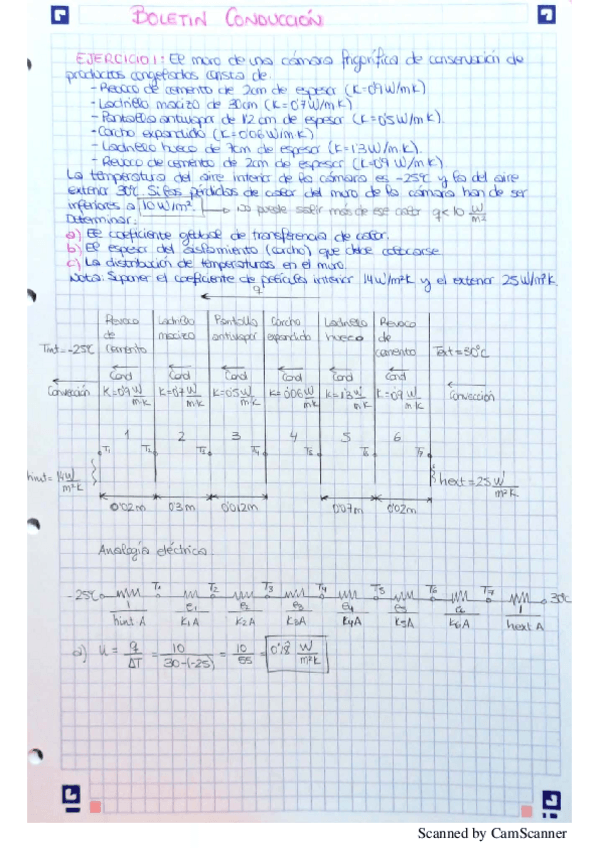 BOLETIN CONDUCCIÓN
EJERCICIO 1: El muro de una cámara frigorífica de conservación de
productos congelados consta de:
- Revoco de cemento de 2cm de espesor (K=0'9 W/mK)
- Ladrillo macizo de 30cm (K=0'7 W/mK)
- Pantalla antivapor de 1'2 cm de espesor (K=0'5 W/mK).
- Corcho expandido (K=0'06 W/mK)
- Ladrillo hueco de 7cm de espesor (K=1'3 W/mK).
- Revoco de cemento de 2cm de espesor (K=0'9 W/mK)
La temperatura del aire interior de la cámara es -25°C y la del aire
exterior 30°C. Si las pérdidas de calor del muro de la cámara han de ser
inferiores a 10 W/m². → No puede salir más de ese calor q<10 W/m²
Determinar:
a) El coeficiente global de transferencia de calor.
b) El espesor del aislamiento (corcho) que debe colocarse
c) La distribución de temperaturas en el muro.
Nota: Suponer el coeficiente de película interior 14 W/m²K y el exterior 25 W/m²K.
q
Revoco de cemento Ladrillo macizo Pantalla antivapor Corcho expandido Ladrillo hueco Revoco de cemento
Tint=-25°C Text=30°C
Cond Cond Cond Cond Cond Cond
Convección K=0'9 W/m·K K=0'7 W/m·K K=0'5 W/m·K K=0'06 W/m·K K=1'3 W/m·K K=0'9 W/m·K Convección
1 2 3 4 5 6
T1 T2 T3 T4 T5 T6 T7
hint=14 W/m²K hext=25 W/m²K
0'02m 0'3m 0'012m 0'07m 0'02m
Analogía eléctrica
-25°C T1 T2 T3 T4 T5 T6 T7 30°C
1/hint A e1/K1A e2/K2A e3/K3A e4/K4A e5/K5A e6/K6A 1/hext A
a) u = q/ΔT = 10/30-(-25) = 10/55 = 0'18 W/m²K
Scanned by CamScanner